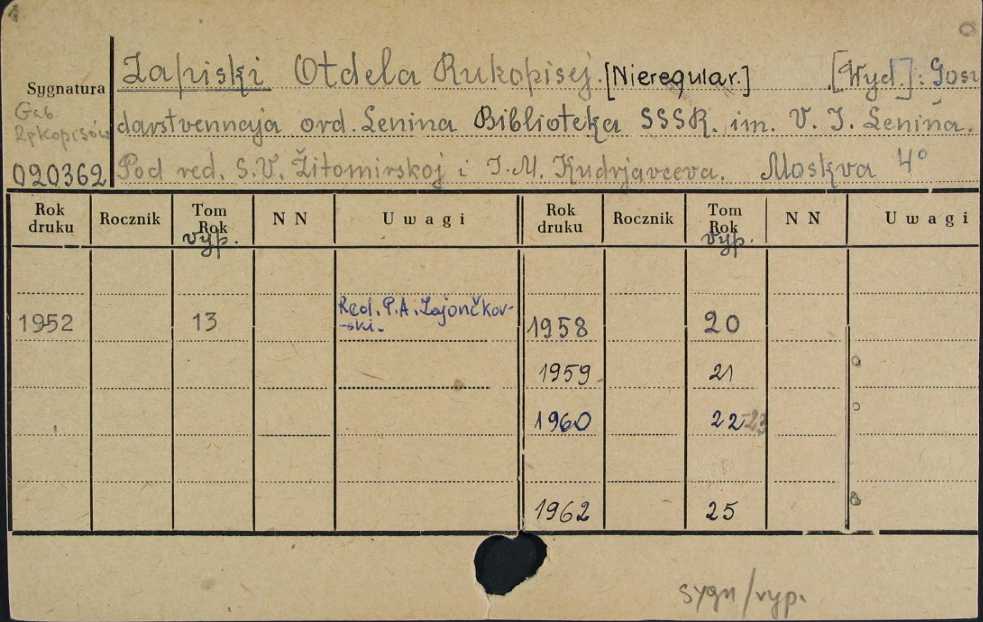 Zapiski Otdela Rukopisej. [Nieregular.] [Wyd.]: Gosu
Sygnatura
Gab. Rękopisów
darstvennaja ord. Lenina Biblioteka SSSR. im. V. I. Lenina.
020362 Pod red. S.V. Žitomirskoj i I.M. Kudrjavceva. Moskva 4°
Rok druku Rocznik Tom Rok vyp. N N Uwagi Rok druku Rocznik Tom Rok vyp. N N Uwagi
1952 13 Red. P.A. Zajončkov-
-ski. 1958 20
1959 21
1960 22-23
1962 25
sygn/vyp.